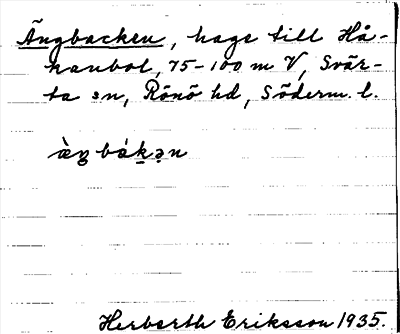 Ängbacken, hage till Hå-
kanbol, 75-100 m V, Svär-
ta sn, Rönö hd, Söderm. l.
àŋbákən
Herberth Eriksson 1935.